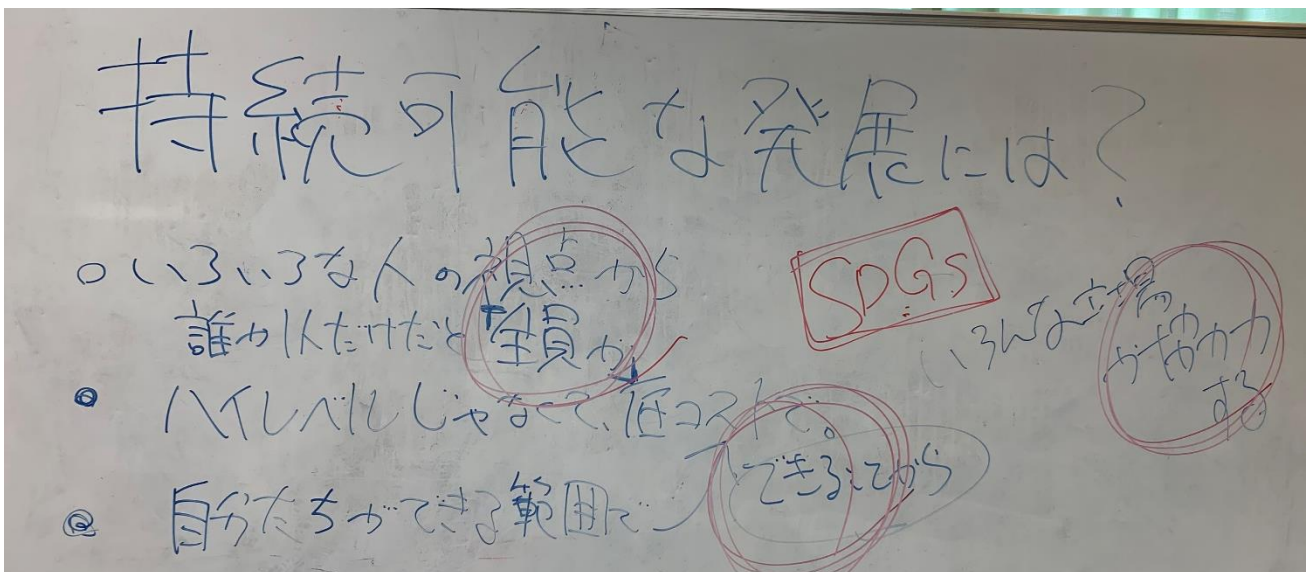 持続可能な発展には?
○いろいろな人の視点から
誰か1人だけだと全員が
SDGs
いろんな立場の
する
ハイレベルじゃなくて、低コストで。
自分たちができる範囲で
できることから